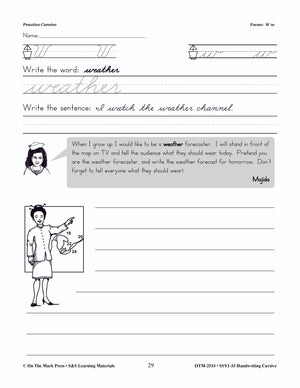 Practice Cursive Focus: W w
Name:
W W w w
Write the word: weather
weather
Write the sentence: I watch the weather channel.
When I grow up I would like to be a weather forecaster. I will stand in front of
the map on TV and tell the audience what they should wear today. Pretend you
are the weather forecaster, and write the weather forecast for tomorrow. Don't
forget to tell everyone what they should wear!
Mojdo
18
24
© On The Mark Press • S&S Learning Materials 29 OTM-2533 • SSY1-33 Handwriting Cursive